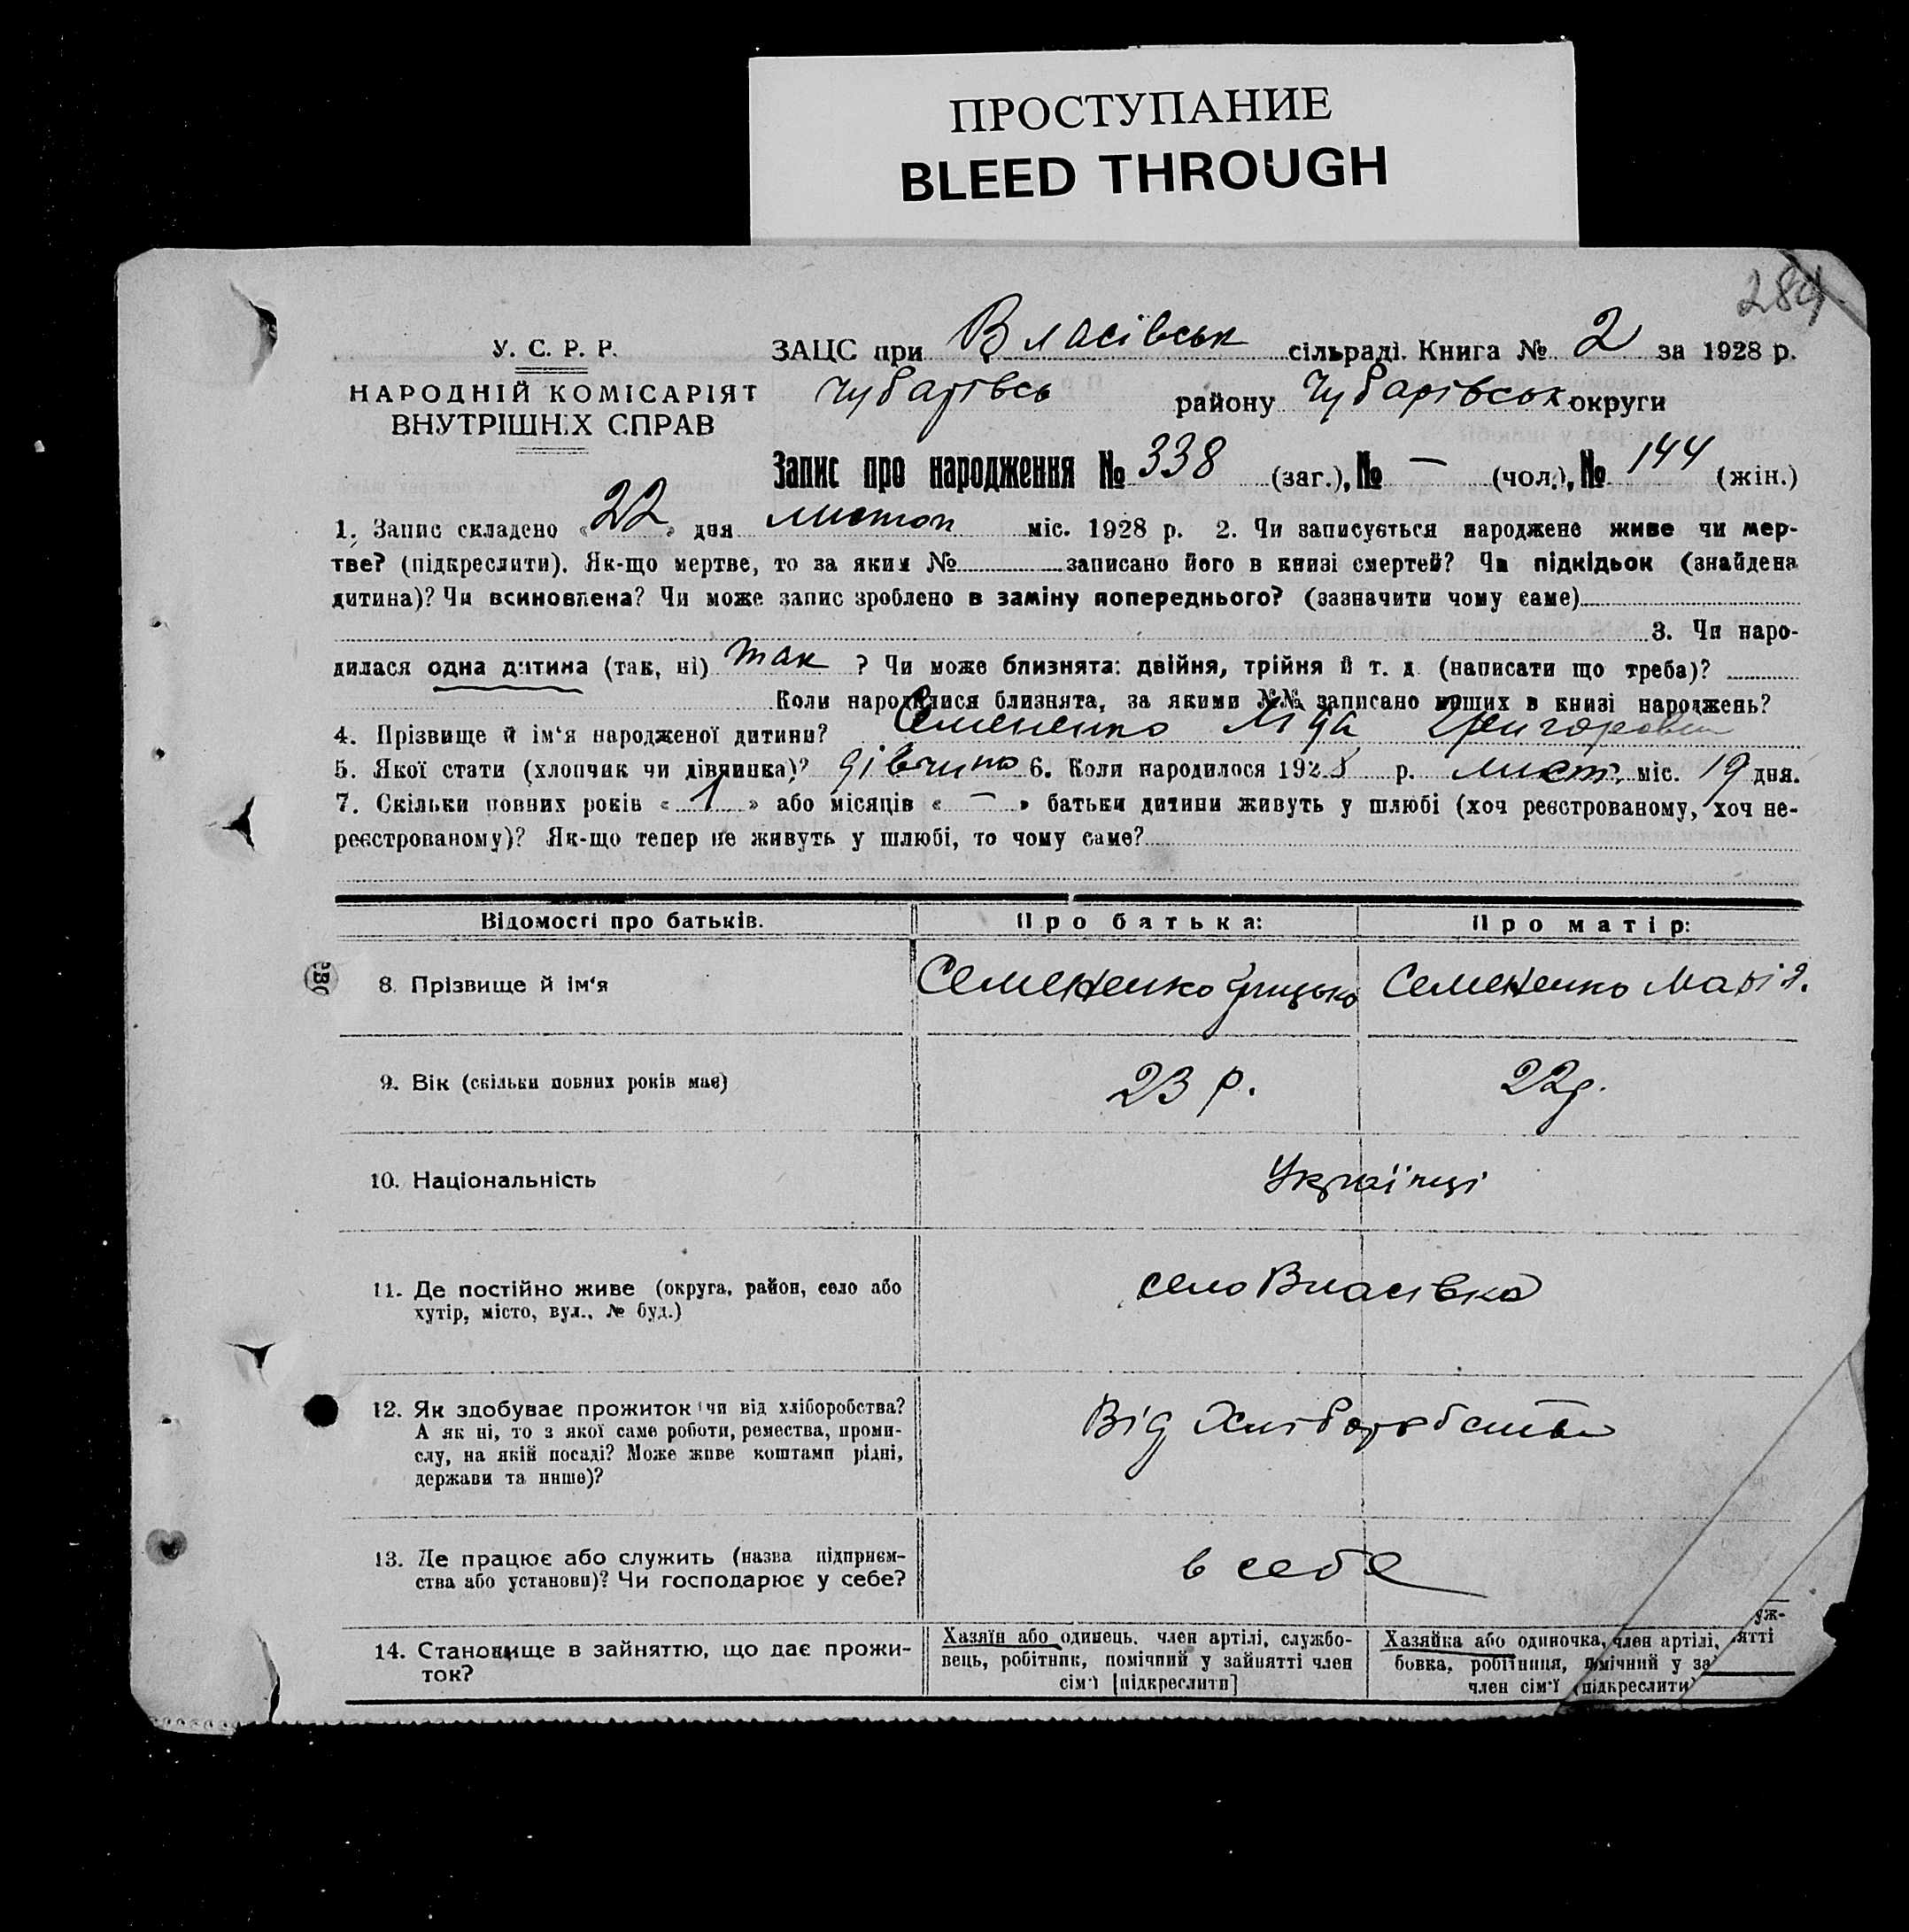 ПРОСТУПАНИЕ
BLEED THROUGH
284
У. С. Р. Р.
НАРОДНІЙ КОМІСАРІЯТ
ВНУТРІШНІХ СПРАВ
ЗАЦС при Власівськ сільраді. Книга № 2 за 1928 р.
Чубарівсь району Чубарівськ округи
Запис про народження № 338 (заг.), № — (чол.), № 144 (жін.)
1. Запис складено «22» дня листоп міс. 1928 р. 2. Чи записується народжене живе чи мер-
тве? (підкреслити). Як-що мертве, то за яким № записано його в книзі смертей? Чи підкідьок (знайдена
дитина)? Чи всиновлена? Чи може запис зроблено в заміну попереднього? (зазначити чому саме)
3. Чи наро-
дилася одна дитина (так, ні) так ? Чи може близнята: двійня, трійня й т. д. (написати що треба)?
Коли народилися близнята, за якими №№ записано инших в книзі народжень?
4. Прізвище й ім‘я народженої дитини? Семененко Ліда
5. Якої стати (хлопчик чи дівчинка)? дівчино 6. Коли народилося 1928 р. лист. міс. 19 дня.
7. Скільки повних років « 1 » або місяців « — » батьки дитини живуть у шлюбі (хоч реєстрованому, хоч не-
реєстрованому)? Як-що тепер не живуть у шлюбі, то чому саме?
Відомості про батьків. Про батька: Про матір:
8. Прізвище й ім‘я Семененко Грицько Семененко Марія.
9. Вік (скільки повних років має) 23 р. 22р.
10. Національність Українці
11. Де постійно живе (округа, район, село або
хутір, місто, вул., № буд.)
село Власівка
12. Як здобуває прожиток чи від хліборобства?
А як ні, то з якої саме роботи, ремества, проми-
слу, на якій посаді? Може живе коштами рідні,
держави та инше)?
Від Хліборобства
13. Де працює або служить (назва підприєм-
ства або установи)? Чи господарює у себе?
в себе
14. Становище в зайняттю, що дає прожи-
ток?
Хазяїн або одинець, член артілі, службо-
вець, робітник, помічний у зайнятті член
сім‘ї [підкреслити]
Хазяйка або одиночка, член артілі,
бовка, робітниця, помічний у за
член сім‘ї (підкреслити)
уж-
ятті